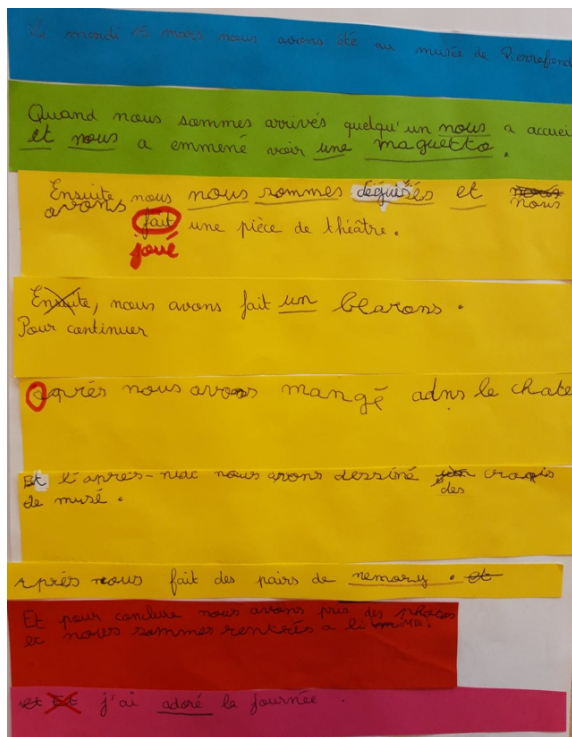 mardi 15 mars nous avons été au musée de Pierrefond
Quand nous sommes arrivés quelqu'un nous a accuei
et nous a emmené voir une maguetto.
Ensuite nous nous sommes déguisés et nous
avons fait une pièce de théâtre. nous
joué
Ensuite, nous avons fait un blarons.
Pour continuer
après nous avons mangé adns le chate
Et l'après-midi nous avons dessiné craquis
de musé. des
Après nous fait des pairs de nemory. et
Et pour conclure nous avons pris des photos
et nous sommes rentrés a
et Et j'ai adoré la journée.